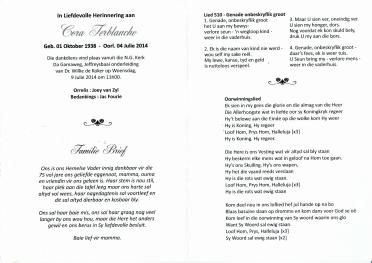 In Liefdevolle Herinnering aan
Cora Terblanche
Geb. 01 Oktober 1938 - Oorl. 04 Julie 2014
Die dankdiens vind plaas vanuit die N.G. Kerk
Da Gamaweg, Jeffreysbaai onderleiding van
Dr. Willie de Koker op Woensdag,
9 Julie 2014 om 13h00.
Orrelis : Joey van Zyl
Bedankings : Jac Fourie
Familie Brief
Ons is ons Hemelse Vader innig dankbaar vir die
75 vol jare ons geliefde eggenoot, mamma, ouma
en vriendin vir ons gelaat het. Haar stem is nou stil,
haar plek aan die tafel leeg maar ons harte sal
altyd vol wees, haar nagedagtenis sal voortleef en
ons sal altyd dit dierbaar en kosbaar bly.
Ons sal haar baie mis, ons sal haar graag nog veel
langer by ons wou hou, maar die Heer het anders
gewil en ons berus in Sy liefdevolle besluit.
Baie lief vir mamma.
Lied 510 - Genade onbeskryflik groot
1. Genade, onbeskryflik groot
het U aan my bewys:
verlore seun - 'n wegloop kind -
weer in die vaderhuis.
2. Ek is die naam van kind nie werd -
wou self my sake reël.
My lewe, kanse, tyd en geld
is natteloos verspeel.
3. Maar U sien ver, oneindig ver.
U sien my honger, dors.
Nog voordat ek kon skuld bely,
druk U my aan die bors.
4. Genade onbeskryflik groot -
daar's fees, ek is weer tuis.
U Seun bring my - verlore mens -
weer in die vaderhuis.
Oorwinningslied
Ek sien in my gees die glorie en die almag van die Heer
Die Allerhoogste wat in liefde oor sy Koninkryk regeer
Hy't belowe aan die Einde op die wolke kom Hy weer
Hy is Koning, Hy regeer
Loof Hom, Prys Hom, Halleluja [x3]
Hy is Koning, Hy regeer
Die Heer is ons Vesting wat vir altyd sal bly staan
Hy beskerm elke mens wat in geloof na Hom toe gaan.
Hy's ons Skuiling, Hy's ons wapen,
Hy het die vyand reeds verslaan
Hy is die rots wat ewig staan.
Loof Hom, Prys Hom, Halleluja [x3]
Hy is die rots wat ewig staan.
Kom deel nou in ons loflied hef jul hande op na bo
Blaas basuine slaan op dromme en kom dans voor God se oë
Kom leef in die oorwinning van Sy woord waarin ons glo
Want Sy Woord sal ewig staan.
Loof Hom, Prys Hom, Halleluja [x3]
Sy Woord sal ewig staan [x2]